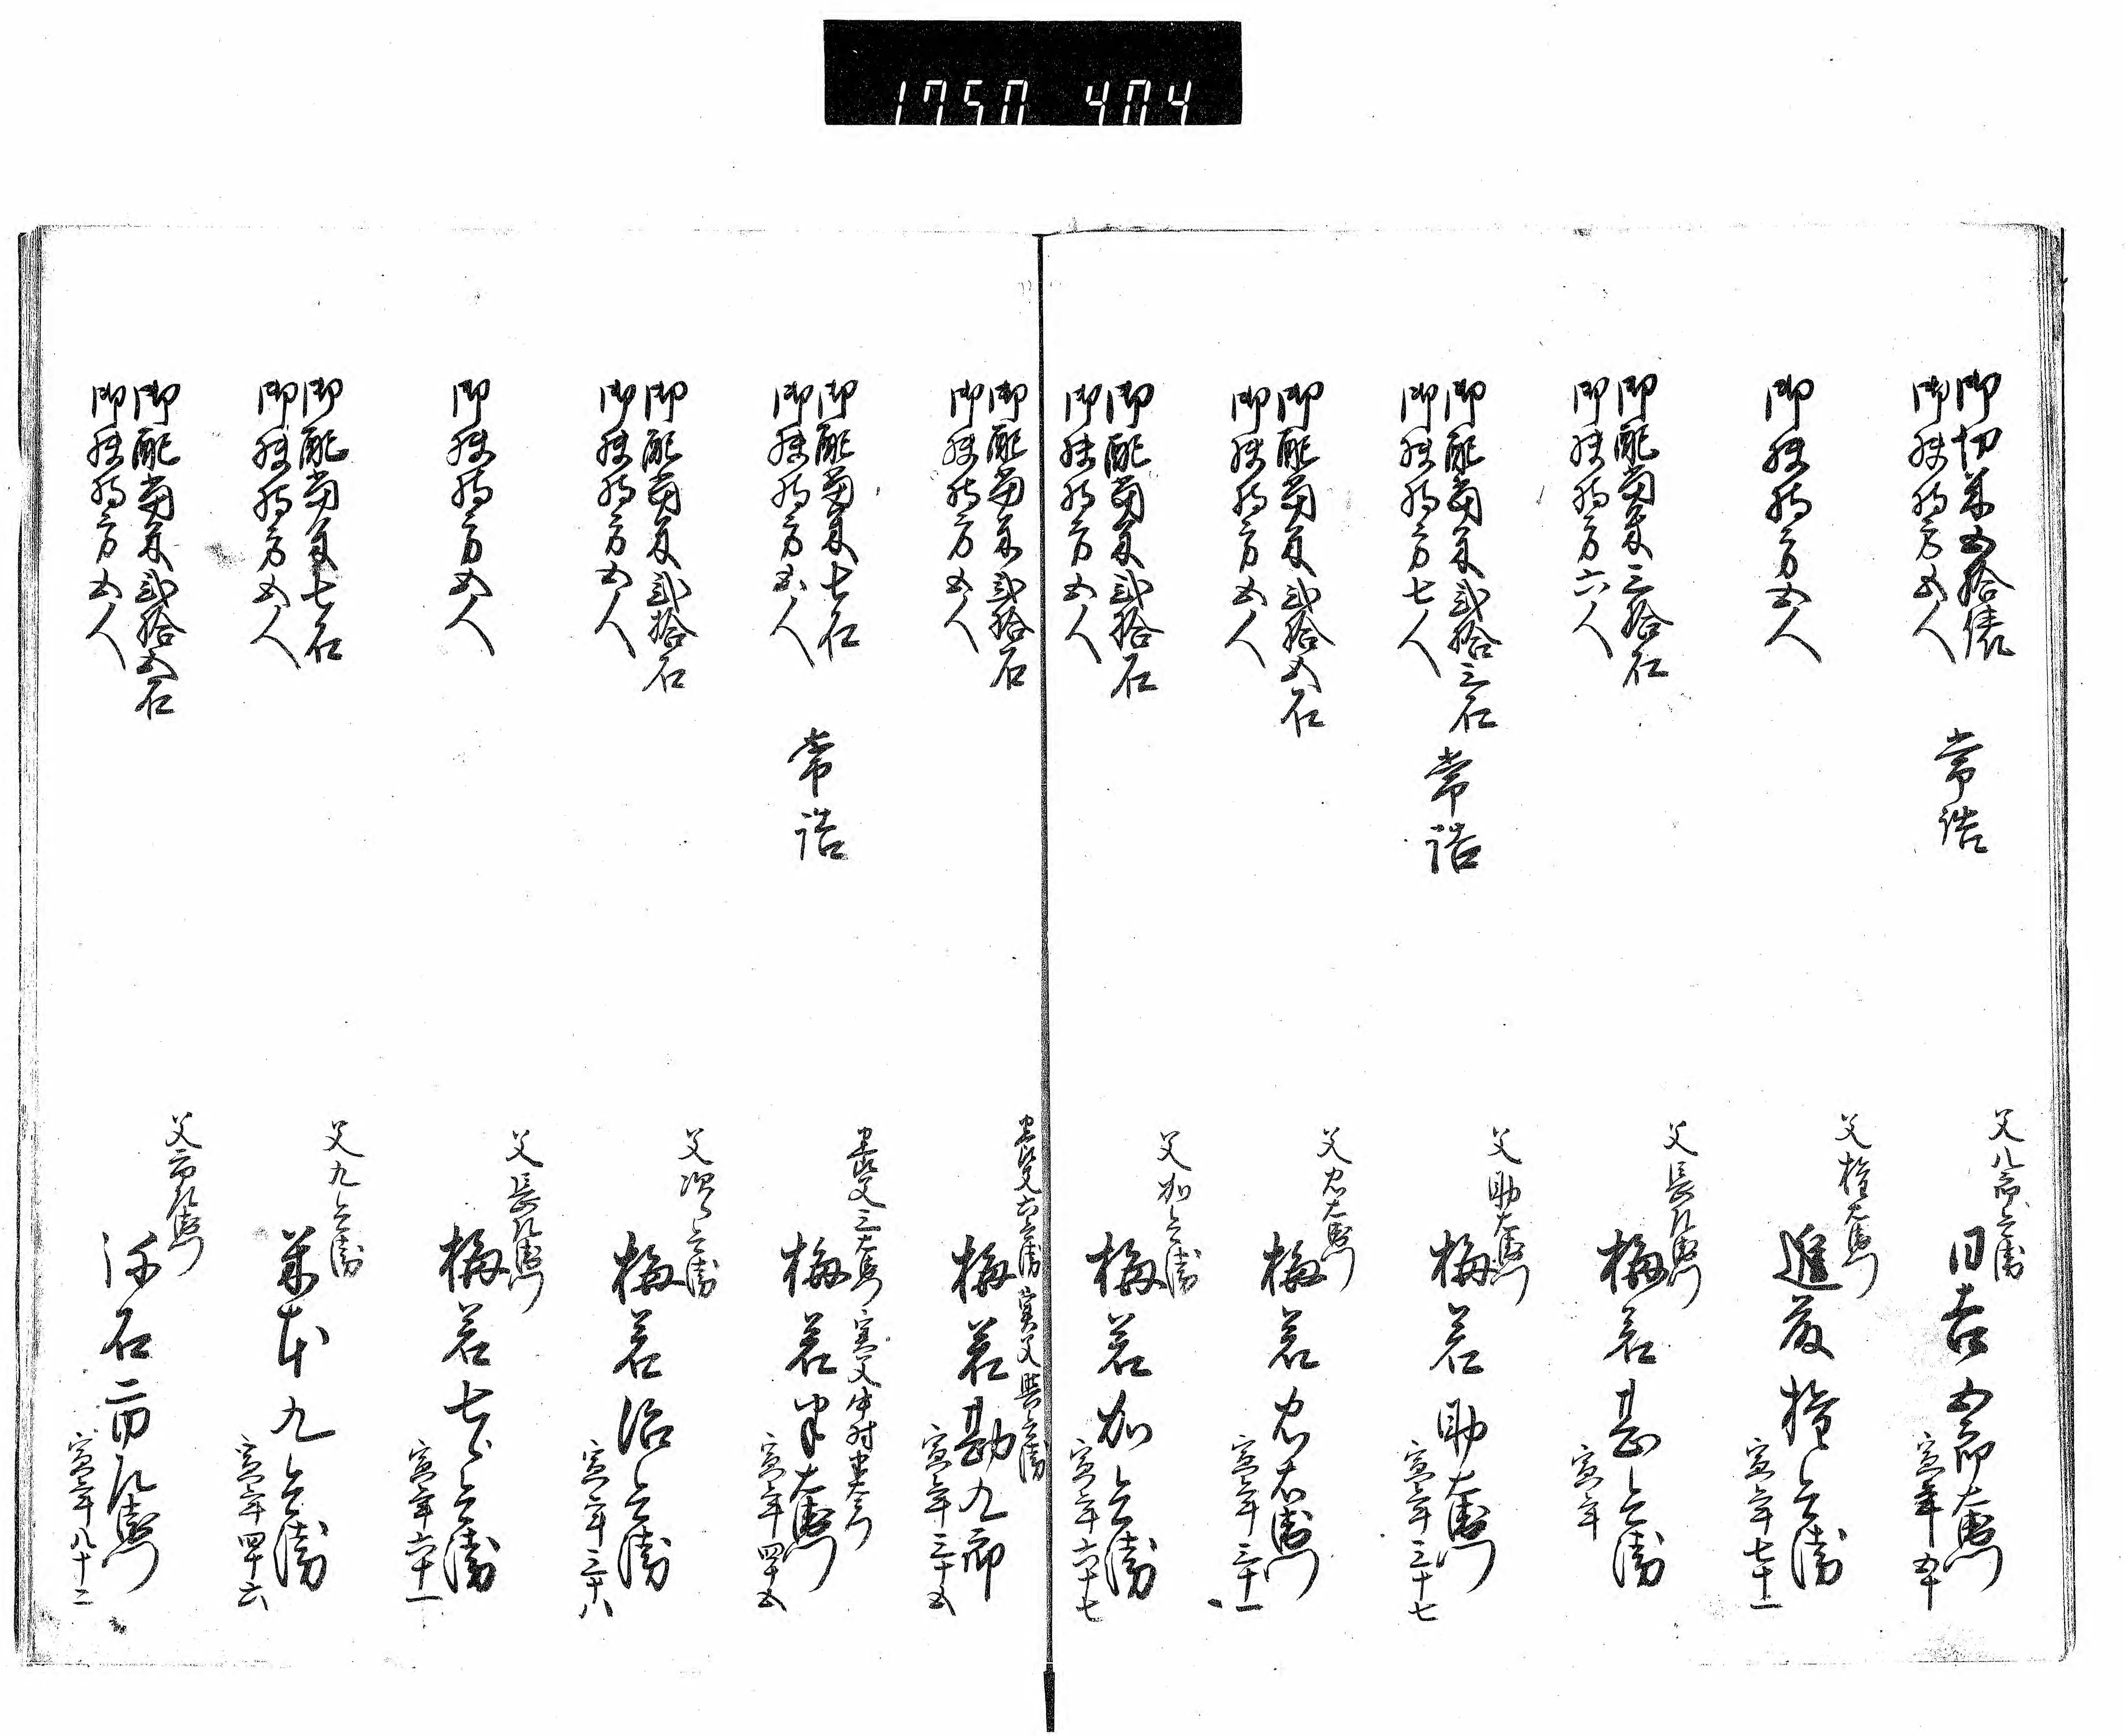 1750 404
御切米五拾俵
御扶持方五人
常詰
父八郎兵衛
日吉五郎左衛門
寅年五十
御扶持方五人
父権左衛門
進藤権兵衛
寅年七十一
御配当米三拾石
御扶持方六人
父長左衛門
梅若甚兵衛
寅年
御配当米弐拾三石
御扶持方七人
常詰
父助左衛門
梅若助左衛門
寅年三十七
御配当米弐拾五石
御扶持方五人
父忠右衛門
梅若忠右衛門
寅年三十一
御配当米弐拾石
御扶持方五人
父加兵衛
梅若加兵衛
寅年六十七
御配当米弐拾石
御扶持方五人
養父六兵衛 実父与兵衛
梅若勘九郎
寅年三十五
御配当米七石
御扶持方五人
常詰
養父三右衛門 実父中村
梅若半右衛門
寅年四十五
御配当米弐拾石
御扶持方五人
父次兵衛
梅若治兵衛
寅年三十八
御扶持方五人
父長左衛門
梅若七兵衛
寅年六十一
御配当米七石
御扶持方五人
父九兵衛
米本九兵衛
寅年四十六
御配当米弐拾五石
御扶持方五人
父市左衛門
弥石市左衛門
寅年八十二